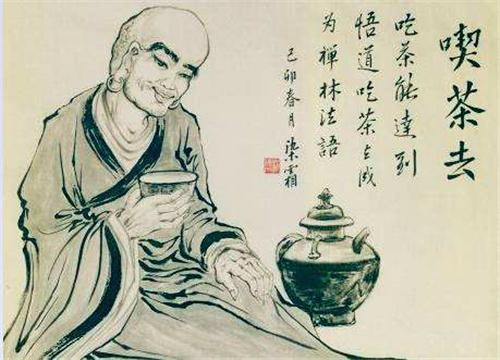 喫茶去
吃茶能達到
悟道吃茶去成
为禅林法語
己卯春月 染霜